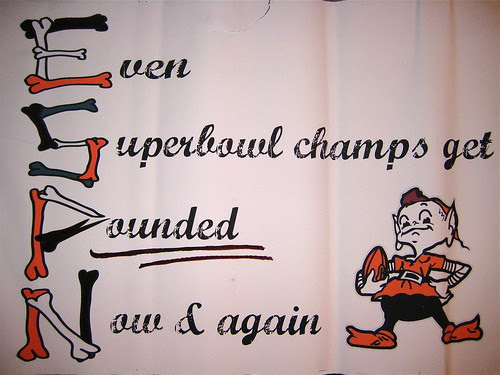 Even
Superbowl champs get
Pounded
Now & again